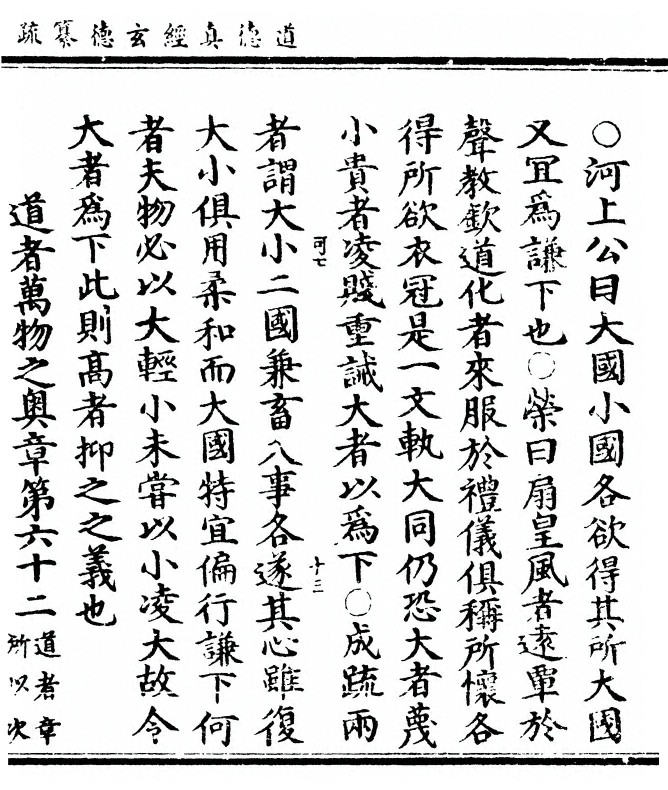 道德真經玄德纂疏
○河上公曰大國小國各欲得其所大國
又冝爲謙下也○榮曰扇皇風者遠覃於
聲教欽道化者來服於禮儀俱稱所懷各
得所欲衣冠是一文軌大同仍恐大者蔑
小貴者凌賤重誡大者以爲下○成疏兩
可七
十三
者謂大小二國兼畜入事各遂其心雖復
大小俱用柔和而大國特宜偏行謙下何
者夫物必以大輕小未嘗以小凌大故令
大者爲下此則髙者抑之之義也
道者萬物之奥章第六十二
道者章
所以次